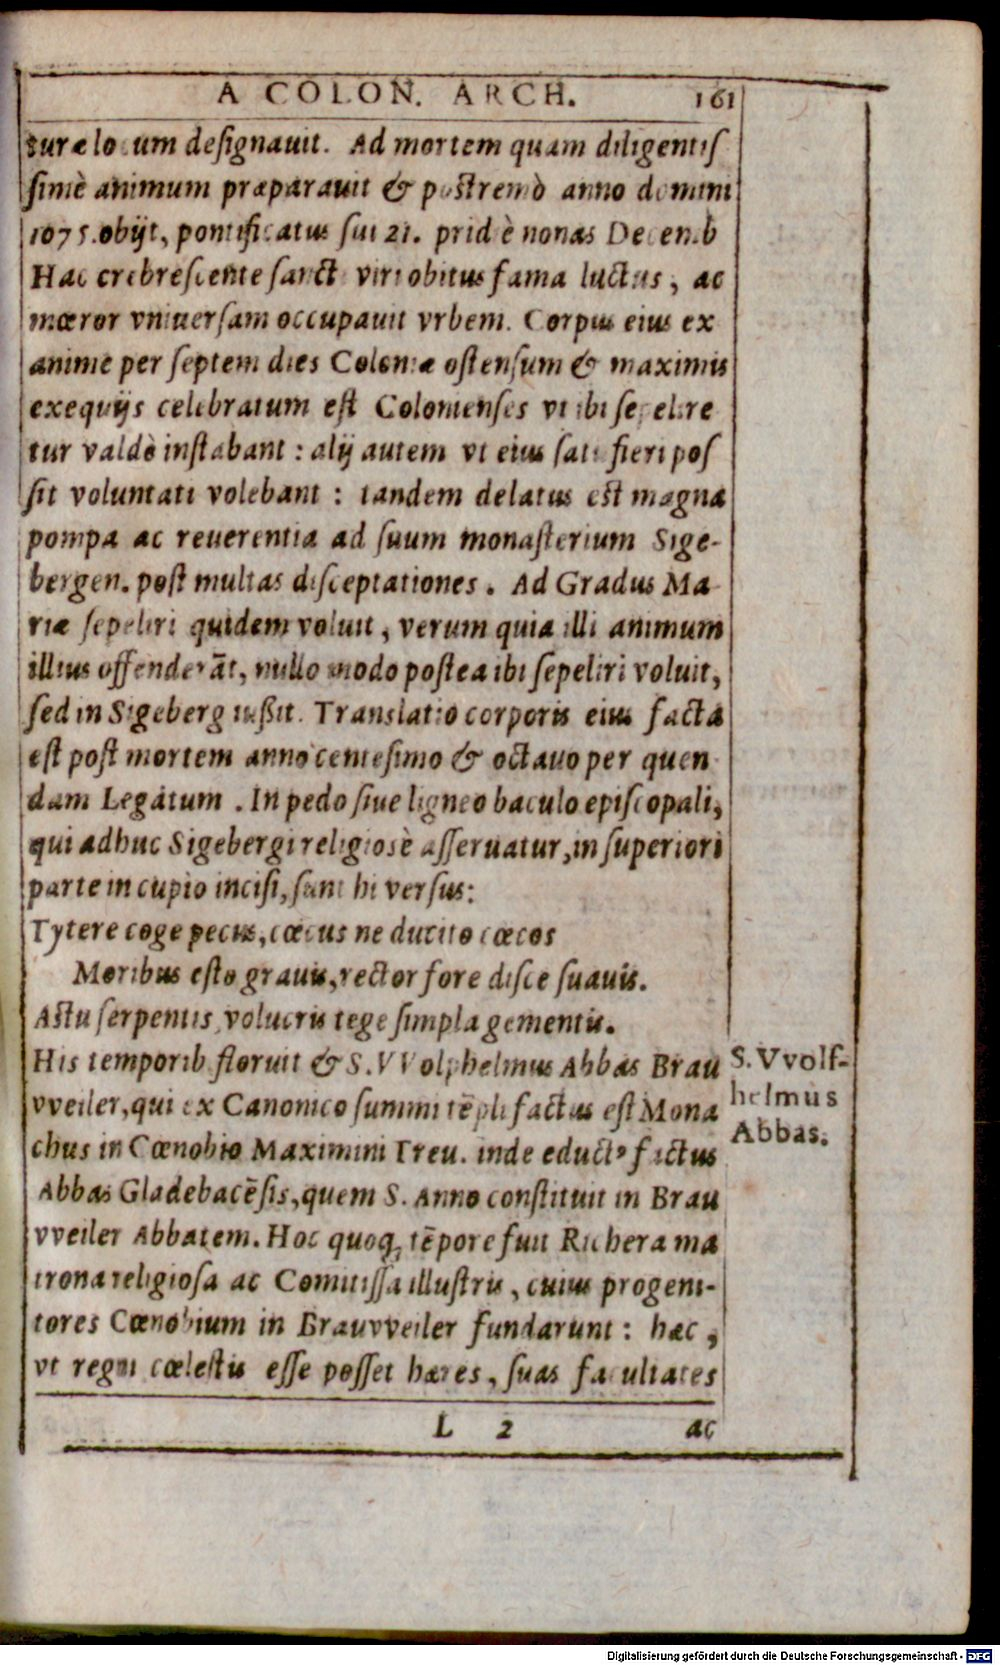 A COLON. ARCH. 161
turæ locum designauit. Ad mortem quam diligentis
simè animum præparauit & postremò anno domini
1075. obijt, pontificatus sui 21. pridiè nonas Decemb
Hac crebrescente sancti viri obitus fama luctus, ac
mœror vniuersam occupauit vrbem. Corpus eius ex
anime per septem dies Coloniæ ostensum & maximis
exequijs celebratum est Colonienses vt ibi sepelire
tur valdè instabant : alij autem vt eius satis fieri pos
sit voluntati volebant : tandem delatus est magna
pompa ac reuerentia ad suum monasterium Sige-
bergen. post multas disceptationes. Ad Gradus Ma
riæ sepeliri quidem voluit, verum quia illi animum
illius offenderāt, nullo modo postea ibi sepeliri voluit,
sed in Sigeberg iußit. Translatio corporis eius facta
est post mortem anno centesimo & octauo per quen
dam Legatum. In pedo siue ligneo baculo episcopali,
qui adhuc Sigebergi religiosè asseruatur, in superiori
parte in cupio incisi, sunt hi versus:
Tytere coge pecus, cœcus ne ducito cœcos
Moribus esto grauis, rector fore disce suauis.
Astu serpentis, volucris tege simpla gementis.
His temporib. floruit & S. VVolphelmus Abbas Brau
vveiler, qui ex Canonico summi tēpli factus est Mona
chus in Cœnobio Maximini Treu. inde educt⁹ factus
Abbas Gladebacēsis, quem S. Anno constituit in Brau
vveiler Abbatem. Hoc quoq; tēpore fuit Richera ma
trona religiosa ac Comitissa illustris, cuius progeni-
tores Cœnobium in Brauvveiler fundarunt : hæc,
vt regni cœlestis esse posset hæres, suas facultates
S. Vvolf-
helmus
Abbas.
L 2 ac
Digitalisierung gefördert durch die Deutsche Forschungsgemeinschaft - DFG